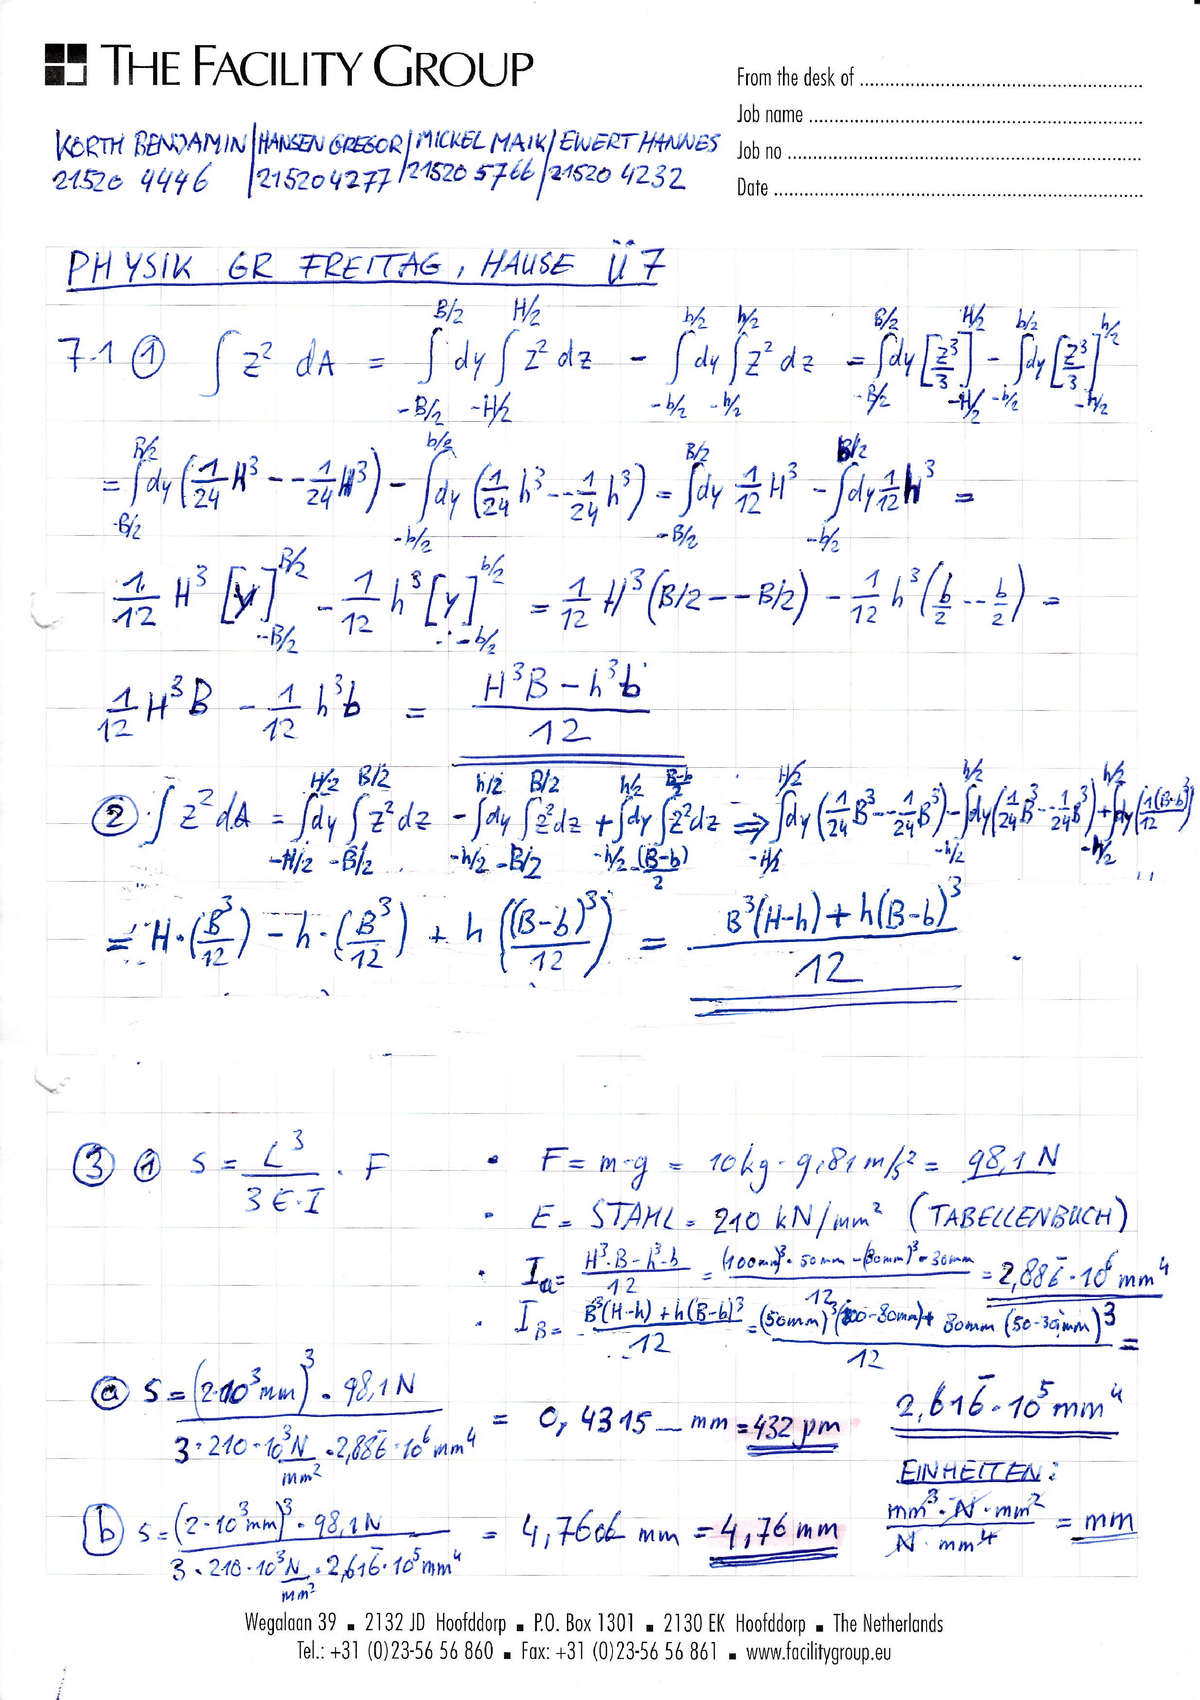 THE FACILITY GROUP
From the desk of
Job name
Job no
Date
KORTH BENJAMIN | HANSEN GREGOR | MICKEL MAIK | EWERT HANNES
21520 4446 | 215204277 | 21520 5766 | 21520 4232
PHYSIK GR FREITAG, HAUSE Ü 7
7.1 ① ∫ z² dA = ∫_{-B/2}^{B/2} dy ∫_{-H/2}^{H/2} z² dz - ∫_{-b/2}^{b/2} dy ∫_{-h/2}^{h/2} z² dz = ∫_{-B/2}^{B/2} dy [z³/3]_{-H/2}^{H/2} - ∫_{-b/2}^{b/2} dy [z³/3]_{-h/2}^{h/2}
= ∫_{-B/2}^{B/2} dy (1/24 H³ - - 1/24 H³) - ∫_{-b/2}^{b/2} dy (1/24 h³ - - 1/24 h³) = ∫_{-B/2}^{B/2} dy 1/12 H³ - ∫_{-b/2}^{b/2} dy 1/12 h³ =
1/12 H³ [y]_{-B/2}^{B/2} - 1/12 h³ [y]_{-b/2}^{b/2} = 1/12 H³ (B/2 - - B/2) - 1/12 h³ (b/2 - - b/2) =
1/12 H³B - 1/12 h³b = (H³B - h³b)/12
② ∫ z² dA = ∫_{-H/2}^{H/2} dy ∫_{-B/2}^{B/2} z² dz - ∫_{-h/2}^{h/2} dy ∫_{-B/2}^{B/2} z² dz + ∫_{-h/2}^{h/2} dy ∫_{-(B-b)/2}^{(B-b)/2} z² dz => ∫_{-H/2}^{H/2} dy (1/24 B³ - - 1/24 B³) - ∫_{-h/2}^{h/2} dy (1/24 B³ - - 1/24 B³) + ∫_{-h/2}^{h/2} dy (1(B-b)³/12)
= H · (B³/12) - h · (B³/12) + h ((B-b)³/12) = (B³(H-h) + h(B-b)³)/12
③ ① s = L³/(3 E·I) · F • F = m·g = 10kg · 9,81 m/s² = 98,1 N
• E = STAHL = 210 kN/mm² (TABELLENBUCH)
• Ia = (H³·B - h³·b)/12 = ((100mm)³ · 50mm - (80mm)³ · 30mm)/12 = 2,886̄ · 10⁶ mm⁴
• IB = (B³(H-h) + h(B-b)³)/12 = ((50mm)³(100-80mm) + 80mm (50-30mm)³)/12 =
2,616̄ · 10⁵ mm⁴
ⓐ s = ((2·10³mm)³ · 98,1N)/(3 · 210 · 10³ N/mm² · 2,886̄ · 10⁶ mm⁴) = 0,4315... mm = 432 µm
EINHEITEN:
(mm³ · N · mm²)/(N · mm⁴) = mm
ⓑ s = ((2·10³mm)³ · 98,1N)/(3 · 210 · 10³ N/mm² · 2,616̄ · 10⁵ mm⁴) = 4,7606 mm = 4,76 mm
Wegalaan 39 ▪ 2132 JD Hoofddorp ▪ P.O. Box 1301 ▪ 2130 EK Hoofddorp ▪ The Netherlands
Tel.: +31 (0)23-56 56 860 ▪ Fax: +31 (0)23-56 56 861 ▪ www.facilitygroup.eu